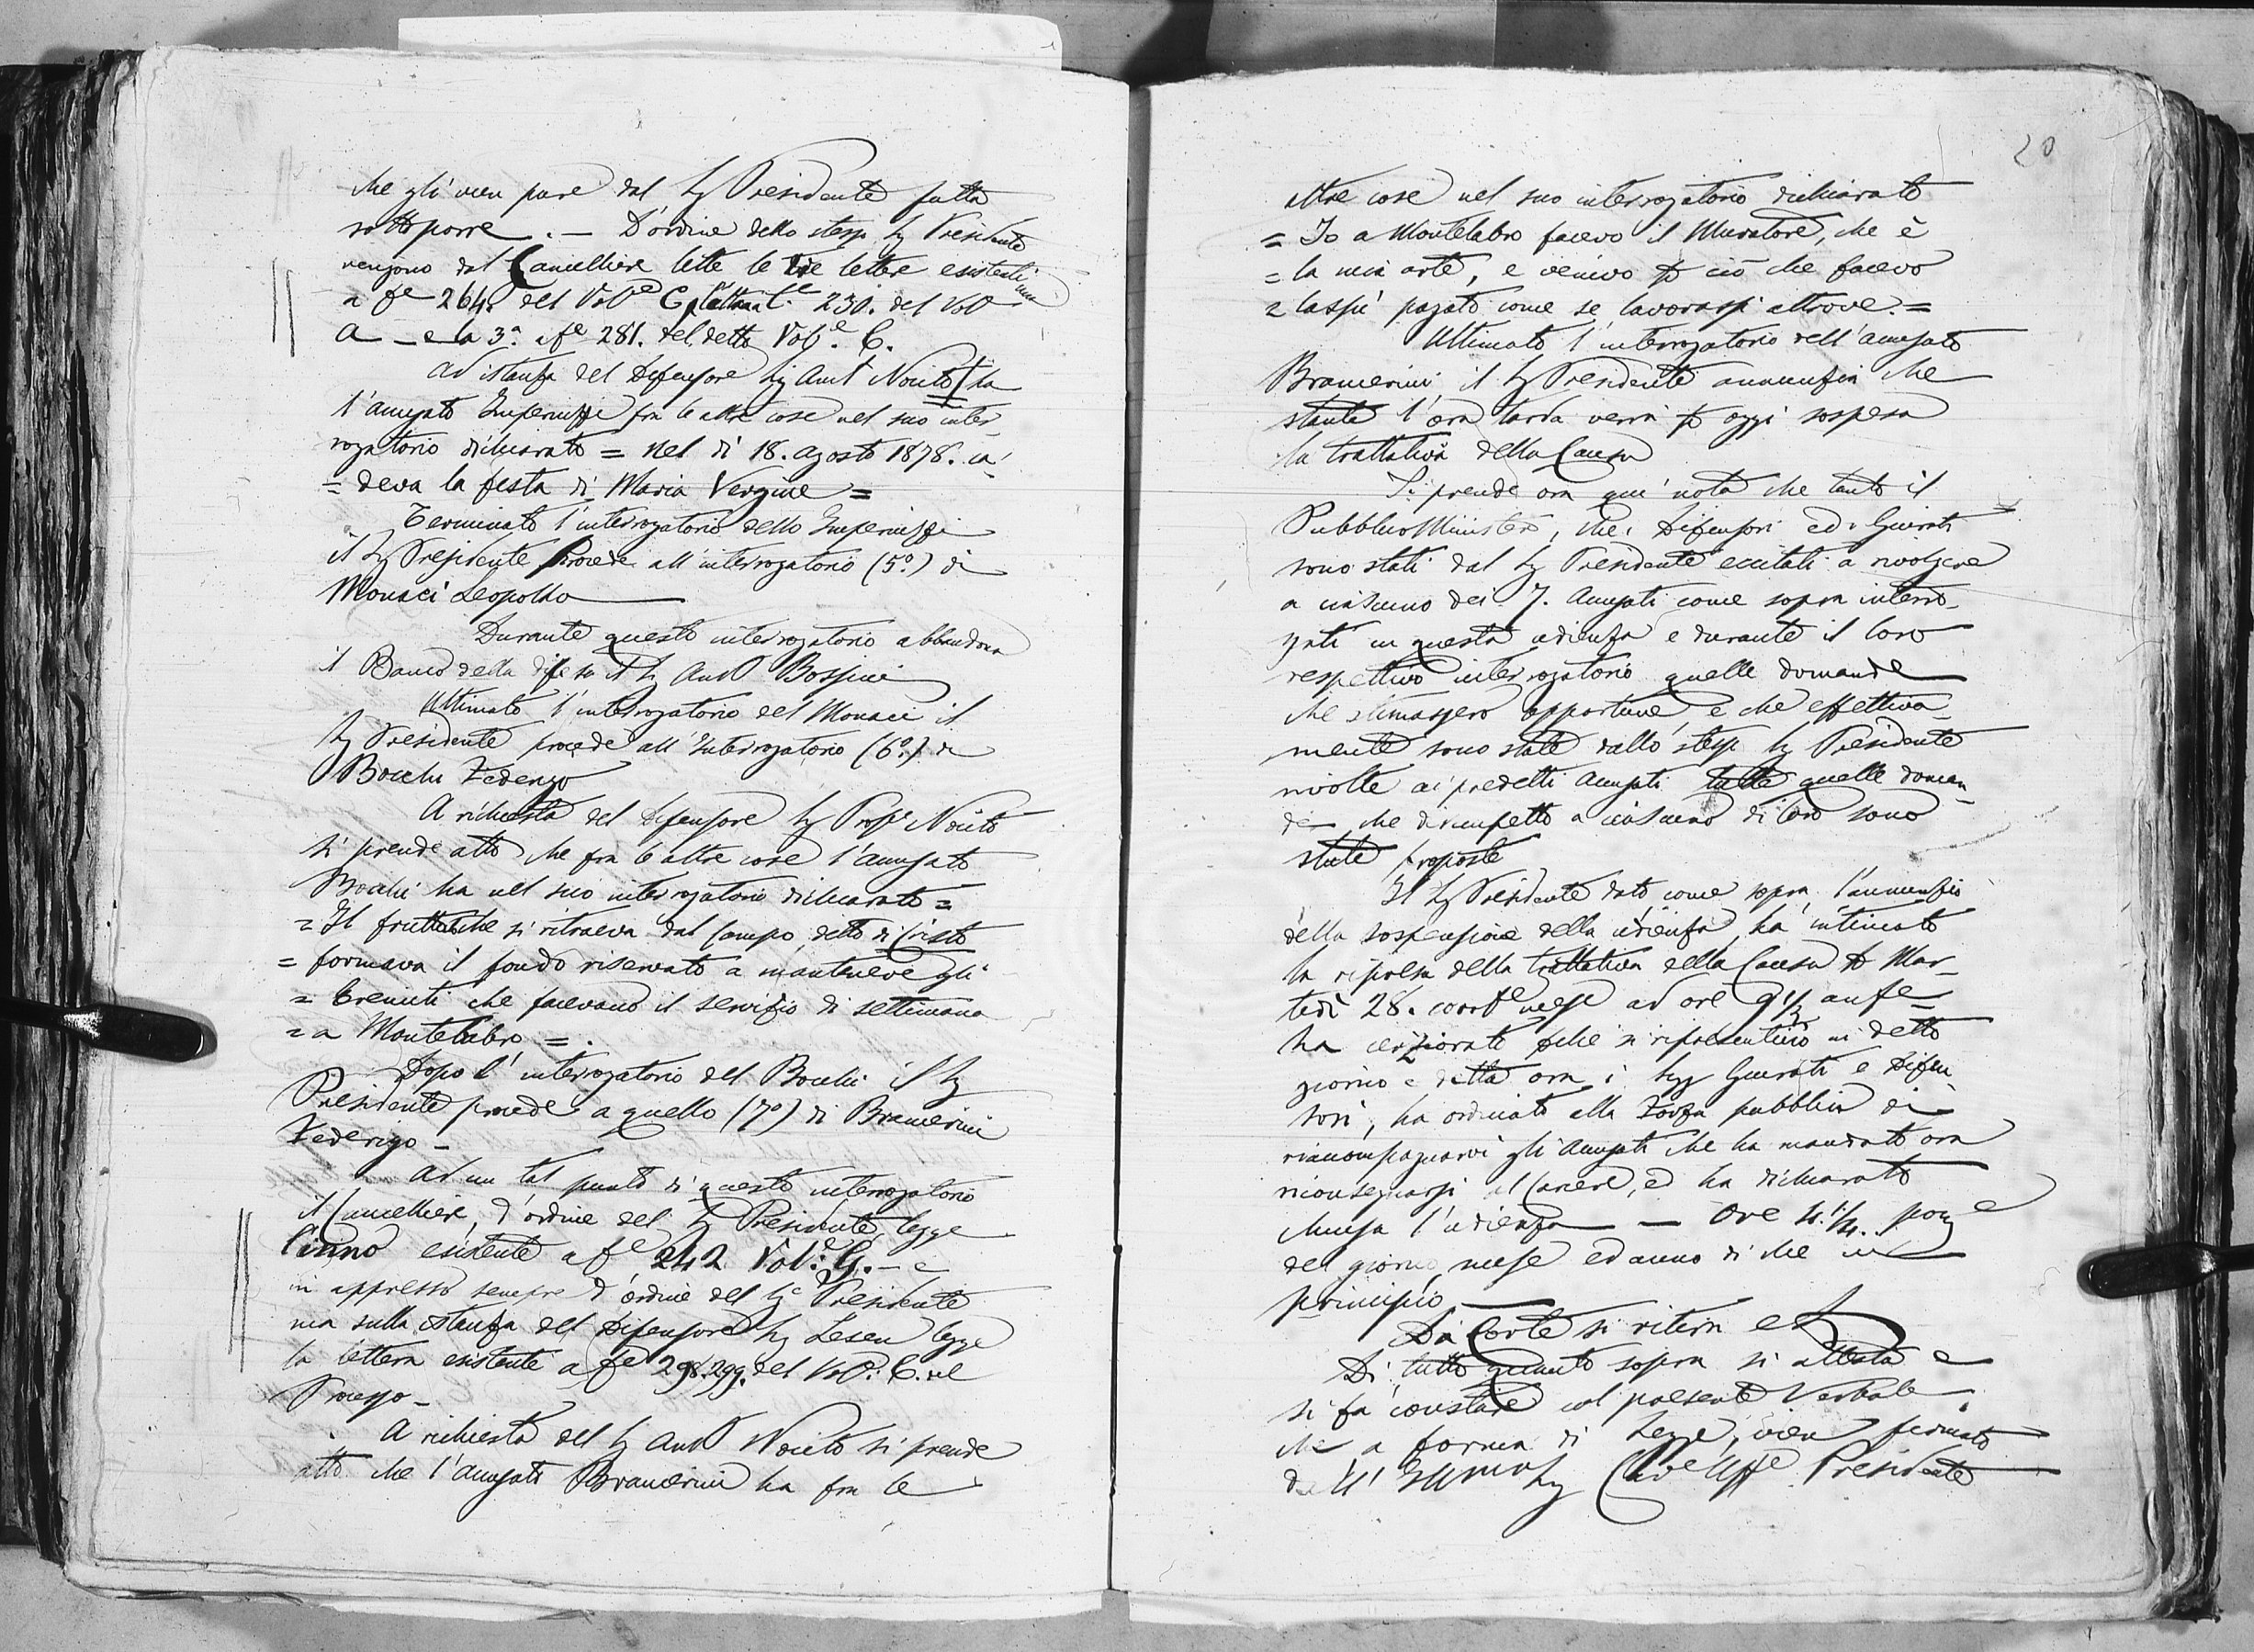 che gli vien pure dal Sig Presidente fatta
sottoporre. — D'ordine dello stesso Sig Presidente
vengono dal Cancelliere lette le tre lettere esistenti una
a fe 264. del Vole C, l'altra a fe 230. del Vol
A — e la 3a a fe 281. del detto Vole. C.
Ad istanza del Difensore Sig Avvt Nocito ha
l'accusato Imperiuzzi fra le altre cose nel suo inter
rogatorio dichiarato = Nel dì 18. agosto 1878. ca
= deva la festa di Maria Vergine =
Terminato l'interrogatorio dello Imperiuzzi
il Sig Presidente procede all'interrogatorio (5o.) di
Monaci Leopoldo
Durante questo interrogatorio abbandona
il Banco della difesa il Sig Avvt Bossini
Ultimato l'interrogatorio del Monaci il
Sig Presidente procede all'Interrogatorio (6o.) di
Bocchi Federigo
A richiesta del Difensore Sig Profr Nocito
si prende atto che fra le altre cose l'accusato
Bocchi ha nel suo interrogatorio dichiarato =
= Il frutto che si ritraeva dal Campo detto di Cristo
= formava il fondo riservato a mantenere gli
= Eremiti che facevano il servizio di settimana
= a Montelabro = .
Dopo l'interrogatorio del Bocchi il Sig
Presidente procede a quello (7o) di Bramerini
Federigo —
Ad un tal punto di questo interrogatorio
il Cancelliere, d'ordine del Sig Presidente, legge
l'inno esistente a fe 242 Vol: G. — e
in appresso sempre d'ordine del Sig Presidente
ma sulla istanza del Difensore Sig Lesen legge
la lettera esistente a fe 298.299. del Vol: C. del
Processo —
A richiesta del Sig Avvt Nocito si prende
atto che l'accusato Bramerini ha fra le
20
altre cose nel suo interrogatorio dichiarato
= Io a Montelabro facevo il Muratore, che è
= la mia arte, e venivo p ciò che facevo
= lassù pagato come se lavorassi altrove. =
Ultimato l'interrogatorio dell'accusato
Bramerini il Sig Presidente annunzia che
stante l'ora tarda verrà p oggi sospesa
la trattativa della Causa
Si prende ora qui nota che tanto il
Pubblico Ministero, che i Difensori ed i Giurati
sono stati dal Sig Presidente eccitati a rivolgere
a ciascuno dei 7. accusati come sopra interro-
gati in questa udienza e durante il loro
respettivo interrogatorio quelle domande
che stimassero opportune, e che effettiva-
mente sono state dallo stesso Sig Presidente
rivolte ai predetti accusati tutte quelle doman-
de che dirimpetto a ciascuno di loro sono
state proposte
Il Sig Presidente dato, come sopra, l'annunzio
della sospensione della udienza, ha intimato
la ripresa della trattativa della Causa p Mar-
tedì 28. corrte mese ad ore 9 1/2 ante
ha cerziorati pche si ripresentino in detto
giorno e detta ora i Sigg Giurati e Difen-
sori, ha ordinato alla Forza pubblica di
riaccompagnarvi gli accusati che ha mandato ora
riconsegnarsi al Carcere, ed ha dichiarato
chiusa l'udienza — Ore 4. 1/4. pome
del giorno, mese ed anno di che in
principio
La Corte si ritira
Di tutto quanto sopra si attesta e
si fa constare col presente Verbale
che a forma di Legge, vien firmato
dall'Illmo Sig Cave Uffe Presidente